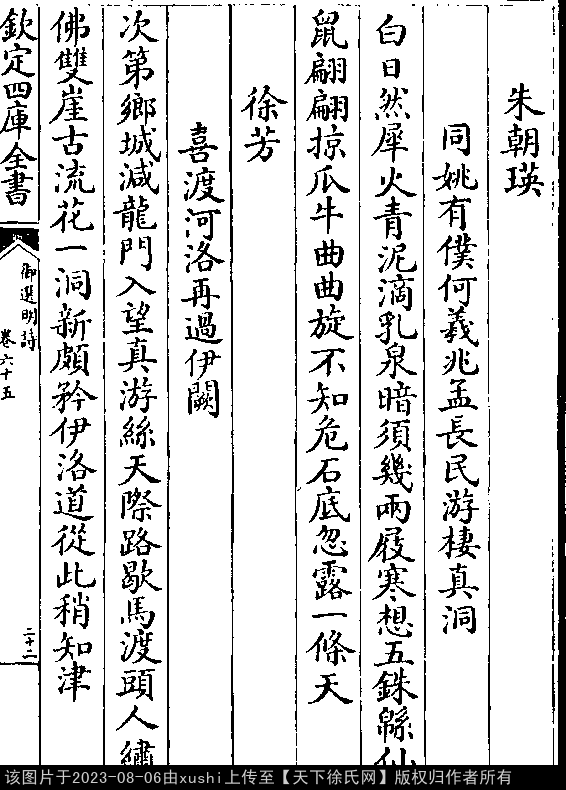 朱朝瑛
同姚有僕何羲兆孟長民游棲真洞
白日然犀火青泥滴乳泉暗須幾兩屐寒想五銖緜仙
鼠翩翩掠瓜牛曲曲旋不知危石底忽露一條天
徐芳
喜渡河洛再過伊闕
次第鄉城減龍門入望真游絲天際路歇馬渡頭人繡
佛雙崖古流花一洞新頗矜伊洛道從此稍知津
欽定四庫全書
御選明詩
卷六十五
二十二
该图片于2023-08-06由xushi上传至【天下徐氏网】版权归作者所有